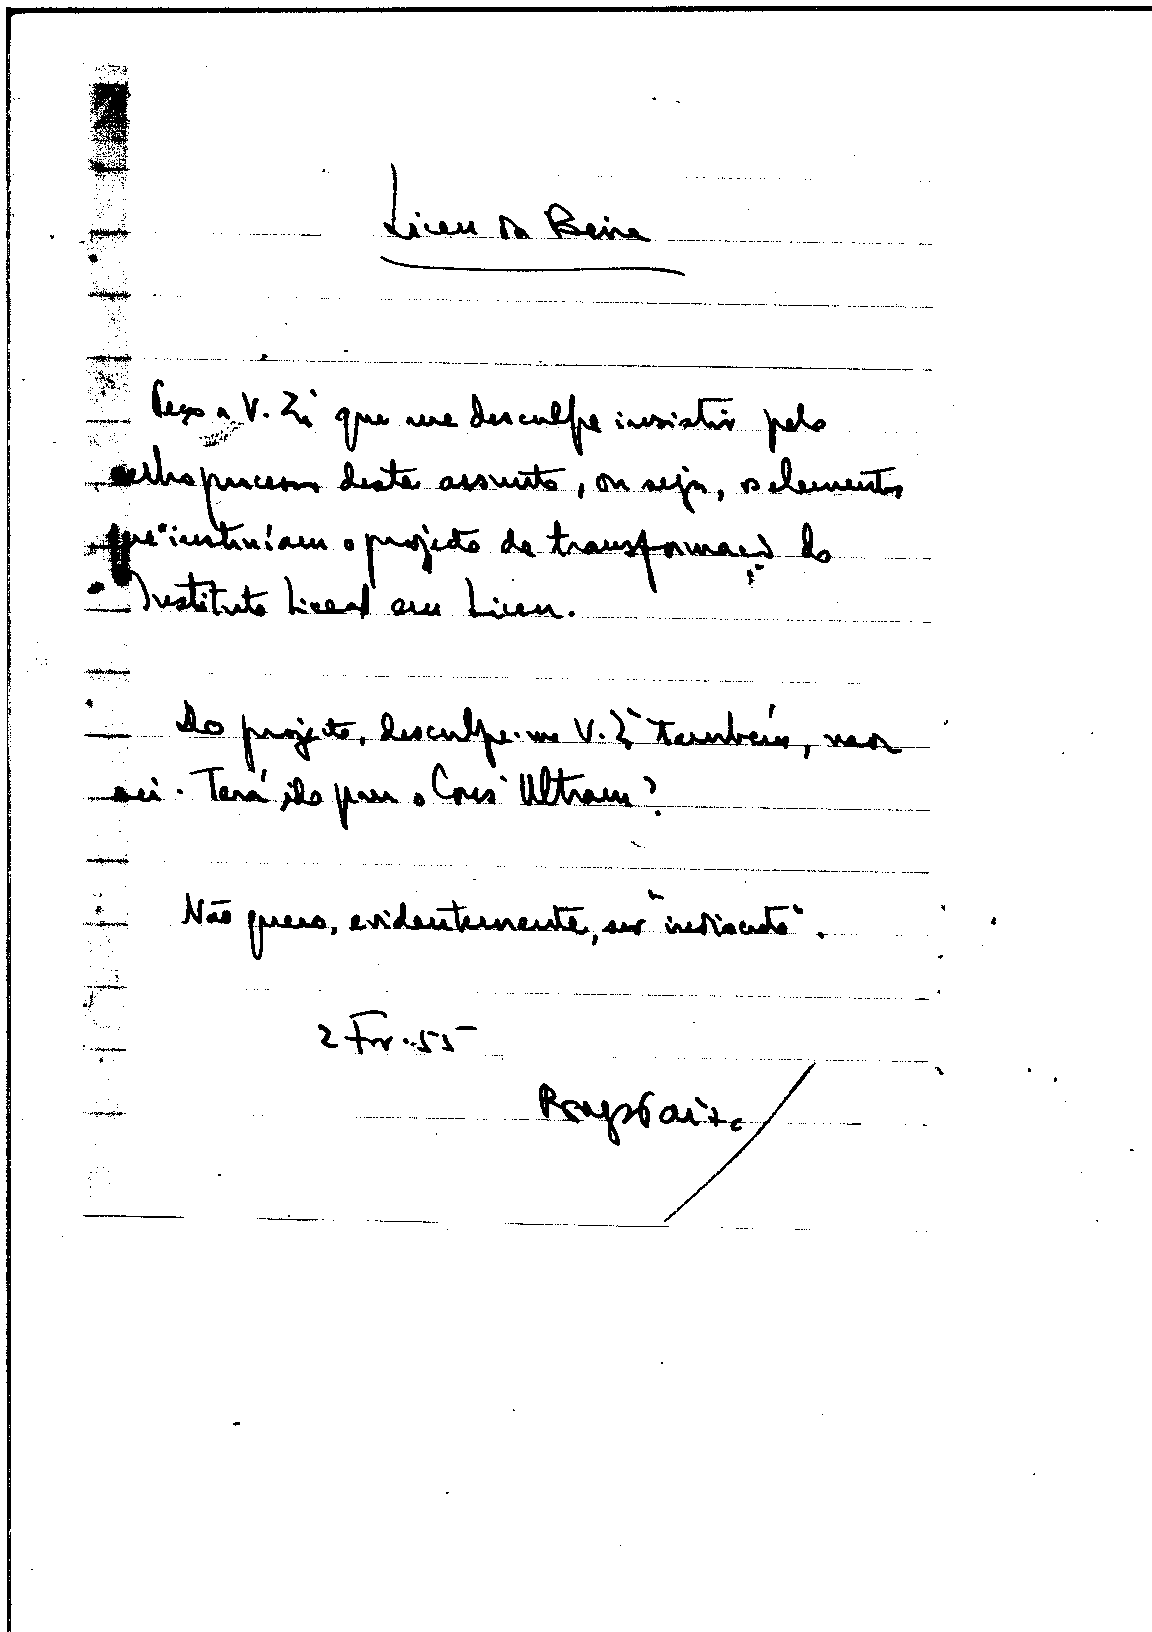 Liceu da Beira
Peço a V. Exª que me desculpe insistir pelo
velho processo deste assunto, ou seja, os elementos
que instruíam o projecto de transformação do
Instituto Liceal em Liceu.
Do projecto, desculpe-me V. Exª também, nada
sei. Terá ido para o Cons. Ultram?
Não quero, evidentemente, ser "indiscreto".
2 Fev. 55